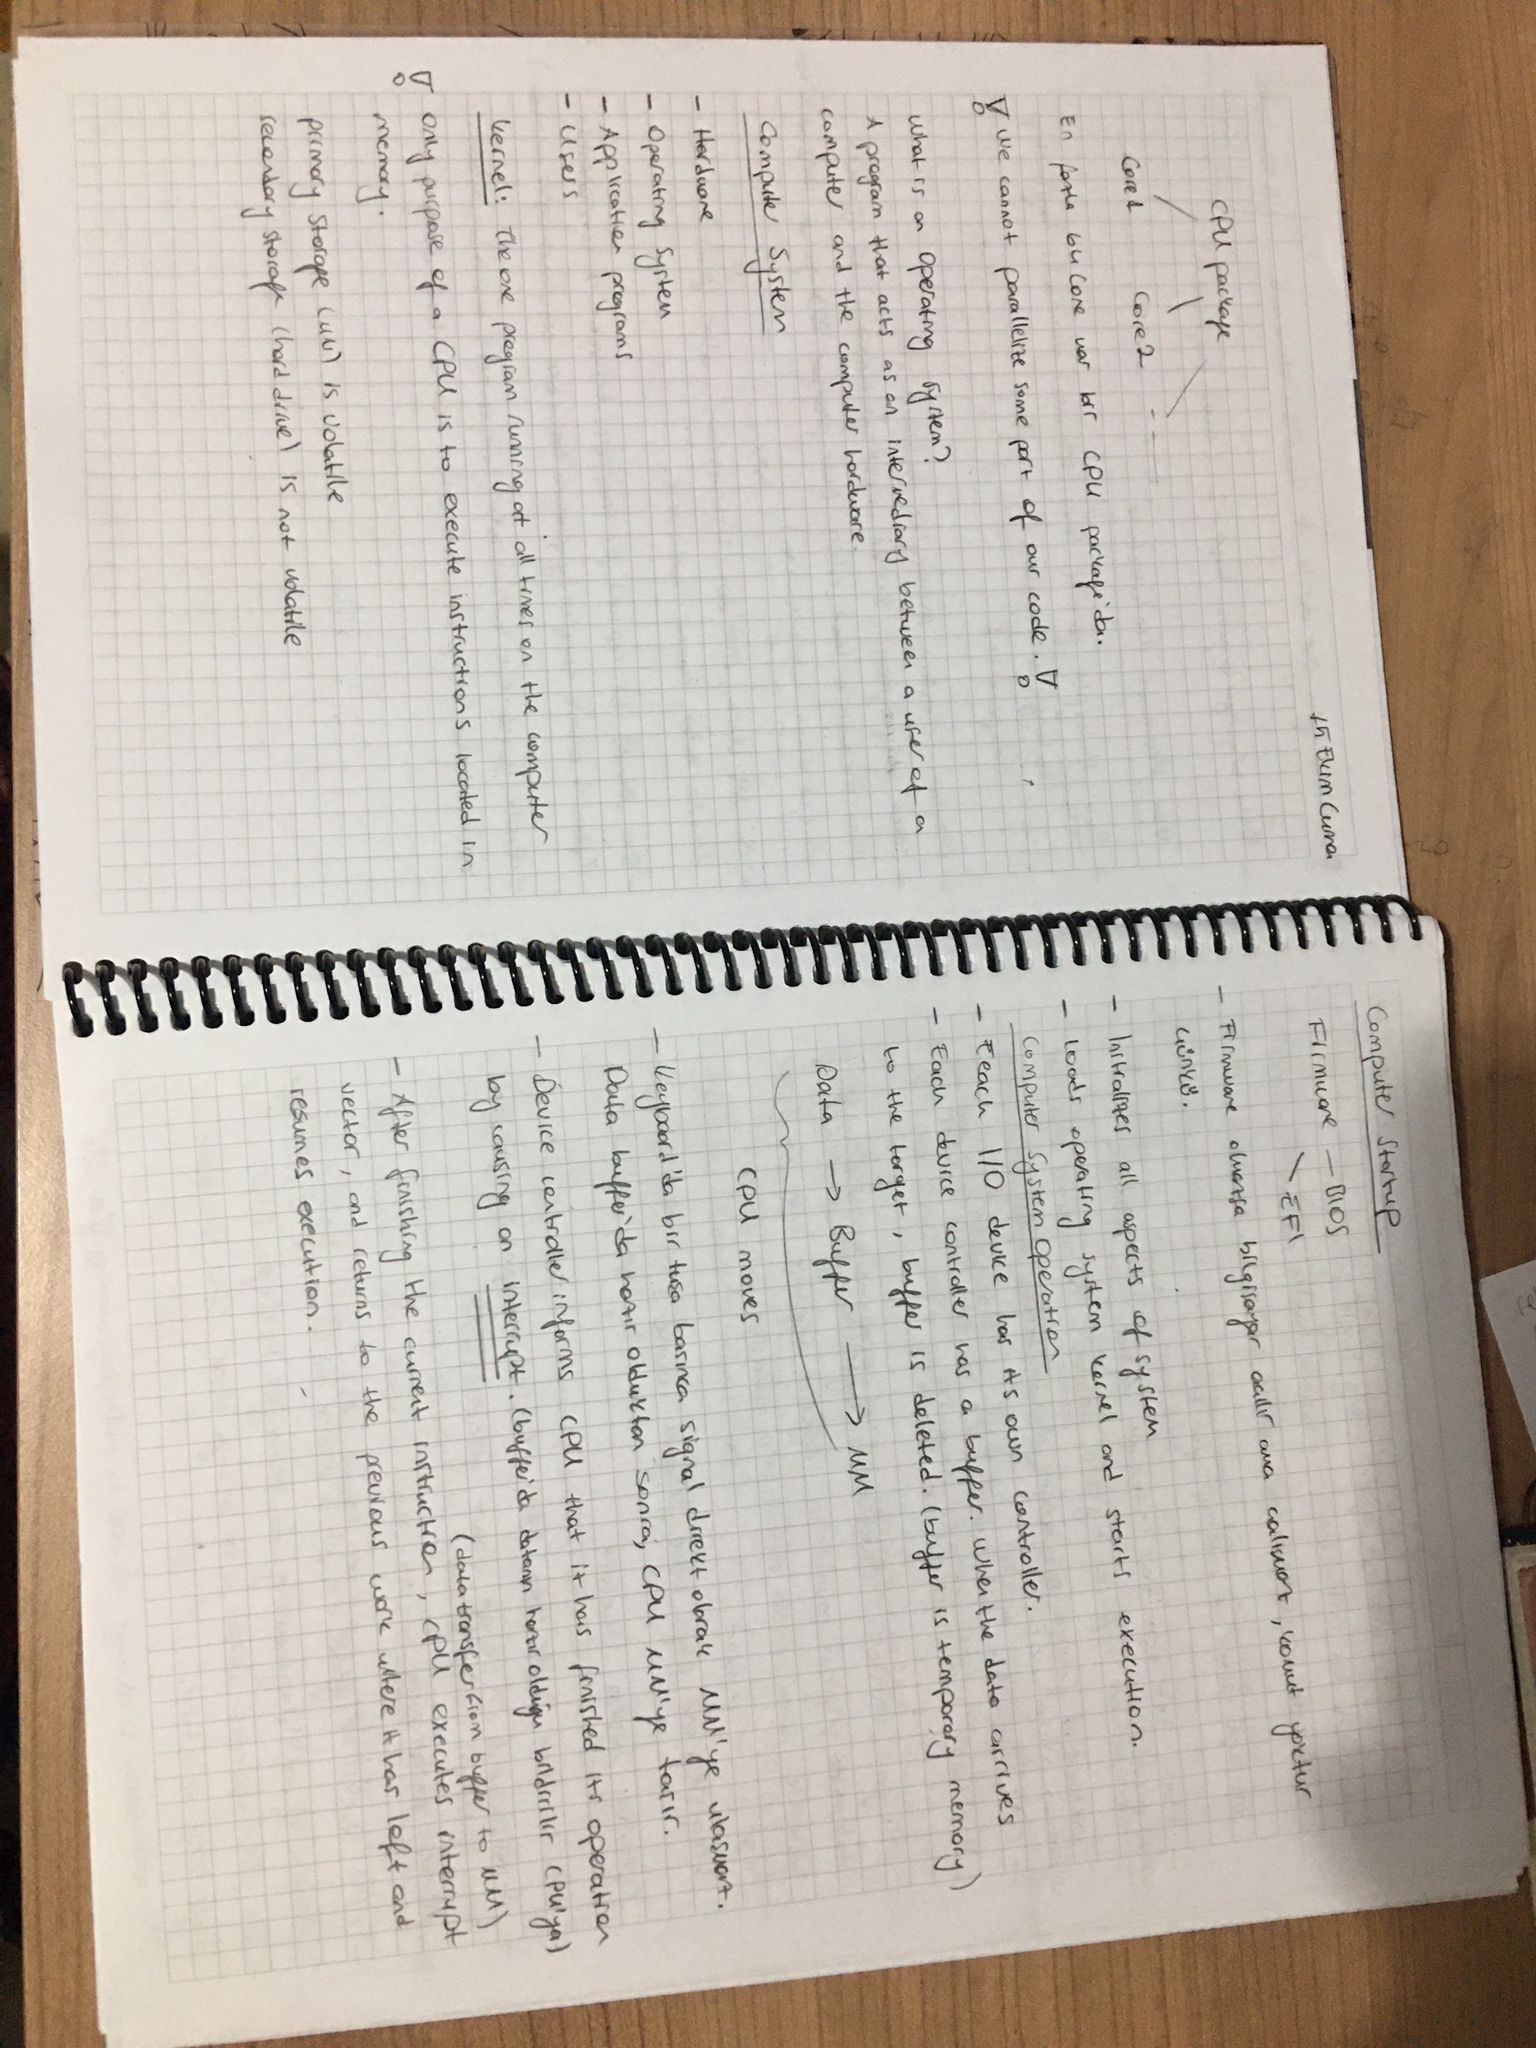 15 Ekim Cuma
CPU package
Core1 Core2 - - -
En fazla 64 Core var bir CPU package'da.
We cannot parallelize some part of our code.
What is an operating system?
A program that acts as an intermediary between a user of a
computer and the computer hardware.
Computer System
- Hardware
- Operating System
- Application programs
- Users
Kernel: The one program running at all times on the computer
only purpose of a CPU is to execute instructions located in
memory.
primary storage (MM) is volatile
secondary storage (hard drive) is not volatile
Computer Startup
Firmware - BIOS
- EFI
- Firmware olmazsa bilgisayar acilir ama calismaz, komut yoktur
cünkü.
- Initializes all aspects of system
- Loads operating system kernel and starts execution.
Computer System Operation
- Each I/O device has its own controller.
- Each device controller has a buffer. When the data arrives
to the target, buffer is deleted. (buffer is temporary memory)
Data → Buffer → MM
CPU moves
- Keyboard'da bir tusa basinca signal direkt olarak MM'ye ulasmaz.
Data buffer'da hazir olduktan sonra, CPU MM'ye tasir.
- Device controller informs CPU that it has finished its operation
by causing an interrupt. (buffer'da datanin hazir oldigu bildirilir CPU'ya)
(data transfer from buffer to MM)
- After finishing the current instruction, CPU executes interrupt
vector, and returns to the previous work where it has left and
resumes execution.